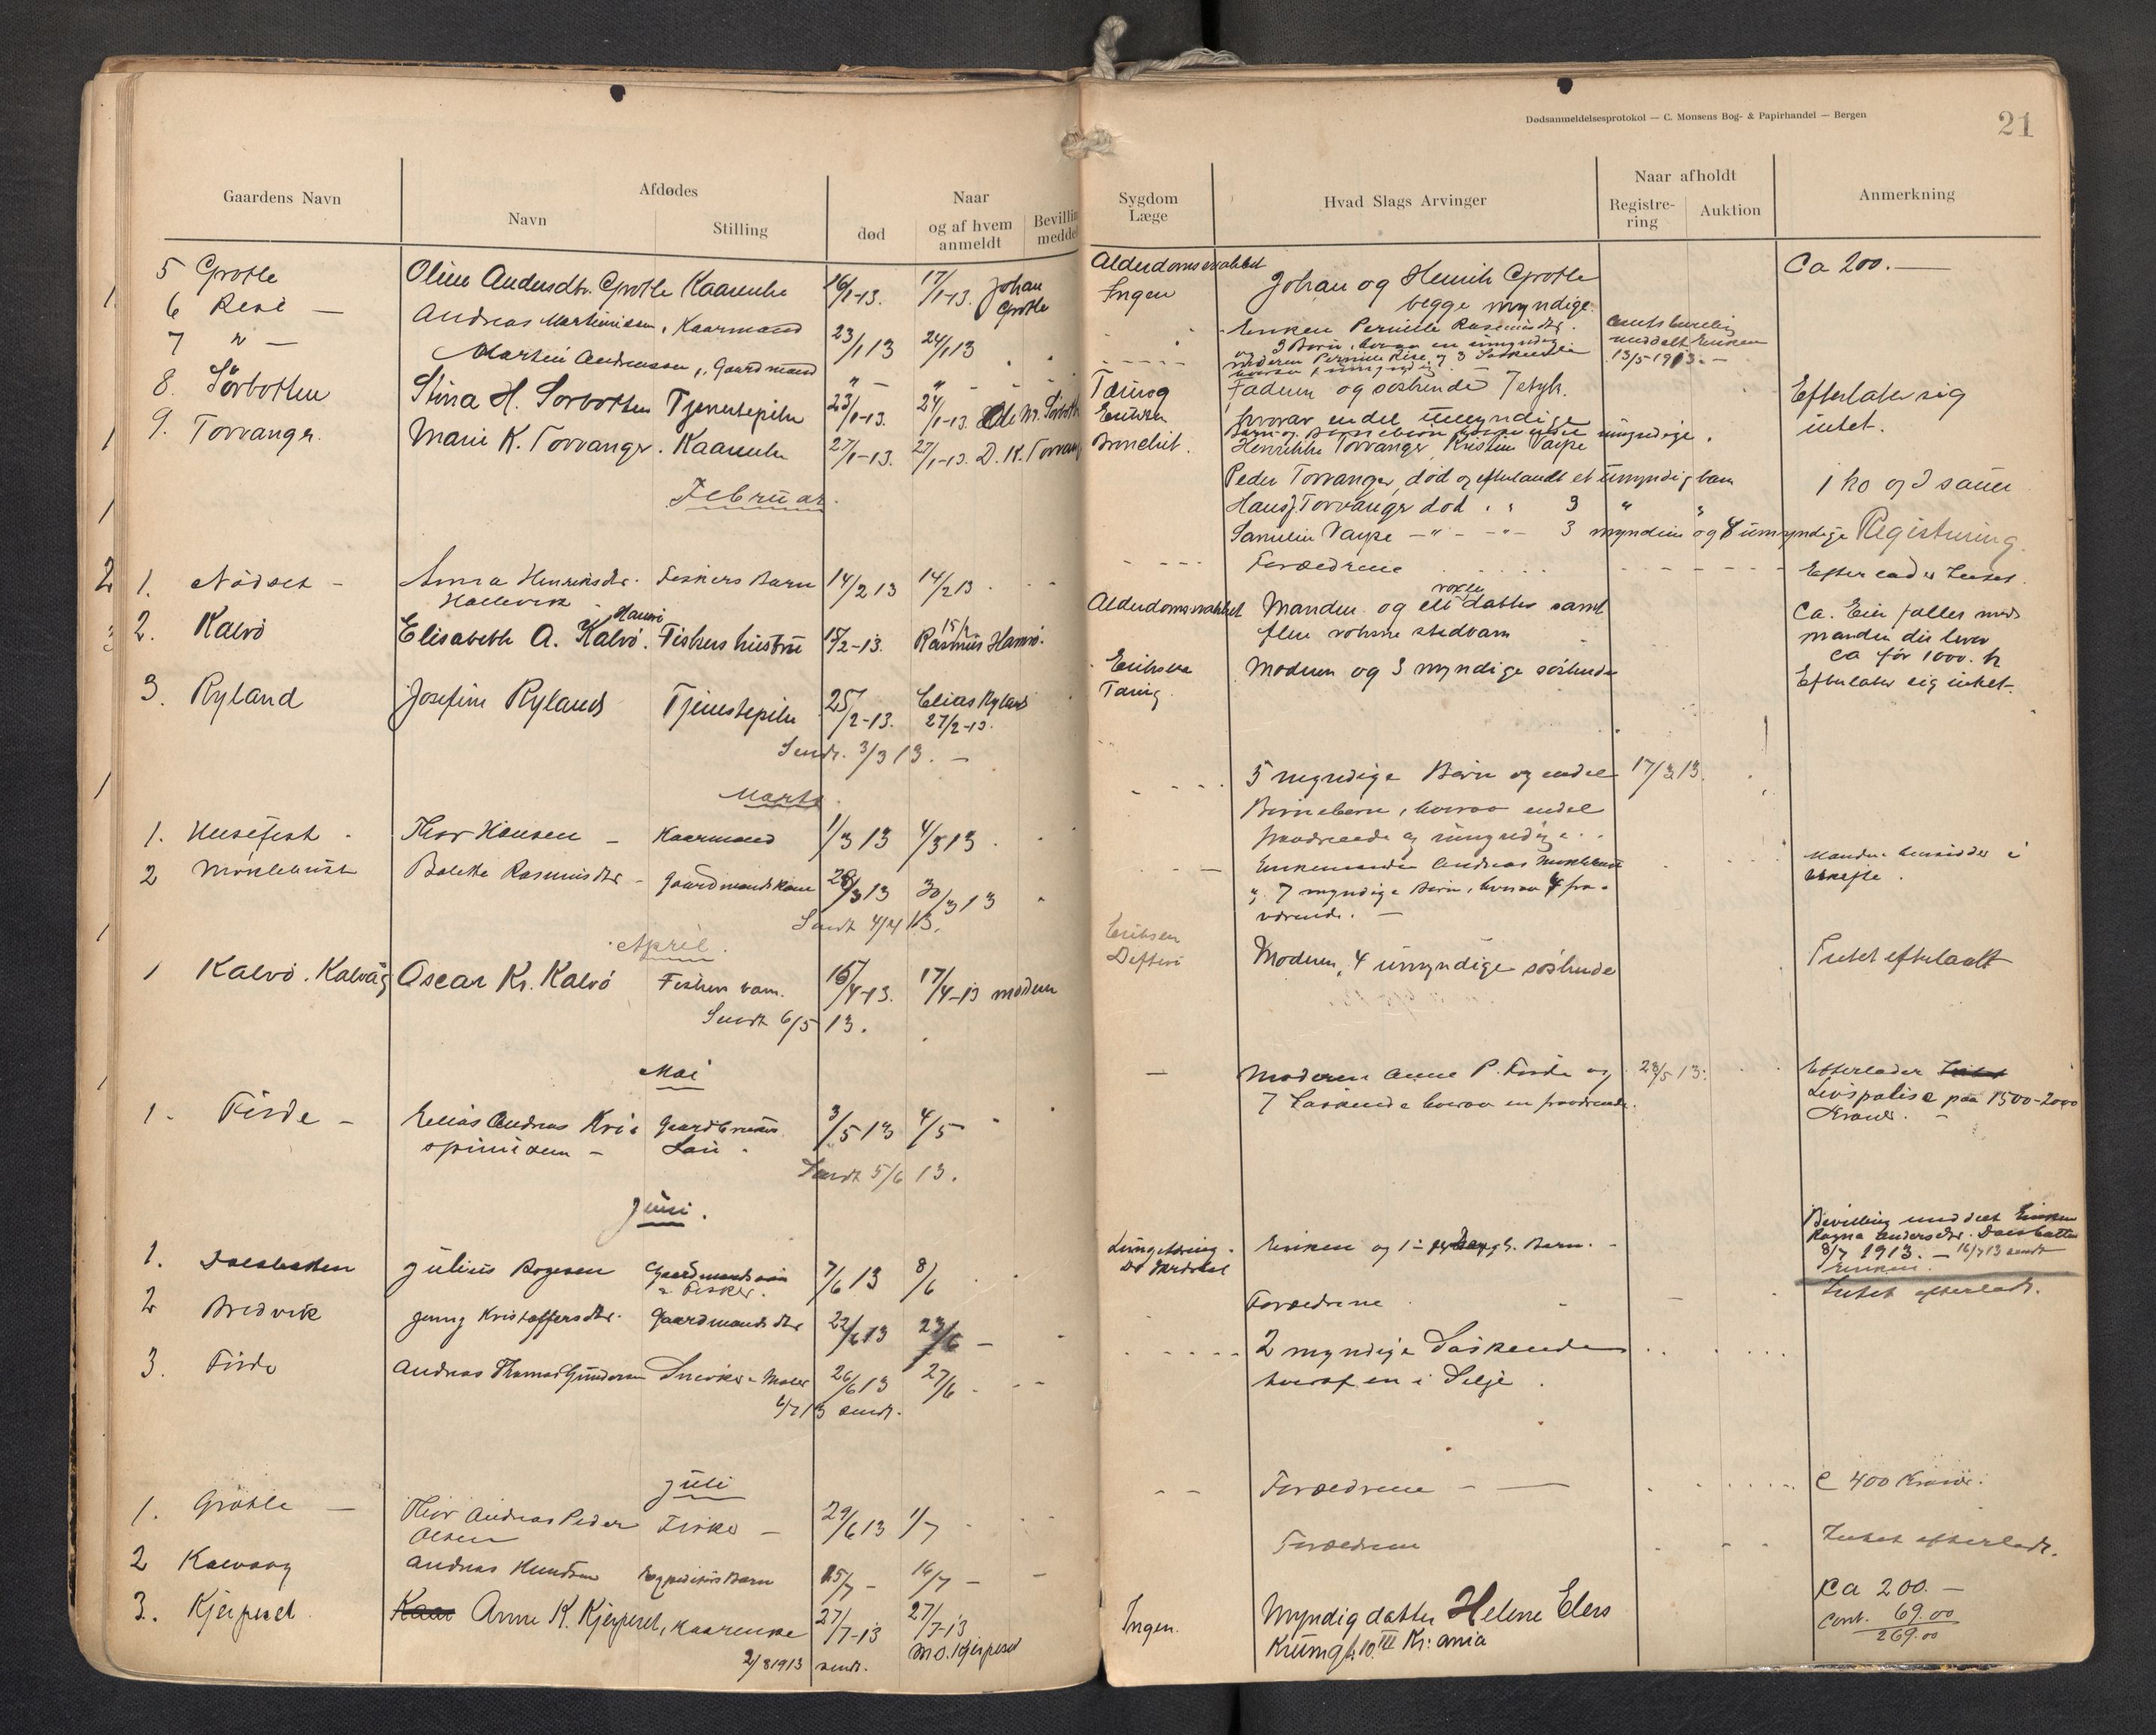 Dødsanmeldelsesprotokol — C. Monsens Bog- & Papirhandel — Bergen
21
Gaardens Navn
Afdødes
Navn
Stilling
Naar
død
og af hvem anmeldt
Bevillin
meddel
Sygdom
Læge
Hvad Slags Arvinger
Naar afholdt
Registre-
ring
Auktion
Anmerkning
5 Grotle Oline Andersdtr. Grotle Kaarenke 16/1-13. 17/1-13. Johan Grotle
Alderdomssvakhet
Ingen
Johan og Henrik Grotle
begge myndige.
Ca 200.—
6 Rise — Andreas Martinussen, Kaarmand 23/1 13 24/1 13
Enken Pernille Rasmusdtr.
13/5-1913.—
7 " — Martin Andreassen, Gaardmand " — " —
8. Sørbotten Stina H. Sorbotten Tjenestepike 23/1-13. 24/1-13. Ole M. Sörbott
Tæring
Faderen og søskende 7 styk.
hvorav endel umyndige
Efterlater sig
intet.
9. Torvanger. Marie K. Torvanger. Kaarenke 27/1-13. 27/1-13. D. K. Torvang
Henrikke Torvanger, Kristine Varpe
Peder Torvanger, død og efterlandt et umyndig barn
Hans J Torvanger død " " 3 " "
Varpe — " — — " — 3 myndige og 4 umyndige
1 ko og 2 sauer
Registrering.
Februar.
1. Nødset — Anna Henriksdtr. Hallevik Fiskers Barn 14/2 13 14/2 13
Forældrene
Efterlader Intet.
2. Kalvö Elisabeth A. Kalvö. Fiskers hustru 15/2-13. 15/2 Rasmus
Alderdomssvakhet
Manden og en voxen datter samt
flere voksne stedbarn
Ca. Eier fælles med
manden der lever
ca for 1000. kr
3. Ryland Josefine Ryland Tjenestepike 25/2-13. Elias Ryland 27/2-13.
Eriksen
Tæring
Moderen og 3 myndige söskende
Efterlater sig intet.
Sendt. 3/3 13. —
Marts
1. Husefest Thor Hansen — Kaarmand 1/3 13 4/3 13
5 myndige Børn og endel
Børnebørn, hvorav endel
fraværende og umyndige.
17/3 13.
2 Mørklebust Bolette Rasmusdtr — Gaardmandskone 28/3 13 30/3 13
Enkemanden Andreas Mørklebust
og 7 myndige Børn, hvorav 4 fra-
værende. —
Sendt 4/4 13.
April.
1 Kalvö. Kalvåg Oscar Kr. Kalvö Fisker barn. 16/4-13. 17/4-13 moderen
Eriksen
Difteri
Moderen, 4 umyndige söskende
Intet efterladt
Sendt 6/5 13.
Mai
1. Förde — Elias Andreas Kri-
spinussen — Gaardbrukers
Søn. 3/5 13 4/5
—
Moderen Anne P. Förde og
7 Søskende hvorav en fraværende.
28/5 13.
Efterlader Intet
Livspolise paa 1500-2000
Kroner. —
Sendt 5/6 13.
Juni.
1. Dalsbotten Julius Gaardmandssøn
& Fisker. 7/6 13 8/6
Enken og 1 Barn. —
Bevilling meddelt Enken
Ragna Andersdtr. Dalsbotten
8/7 1913. — 16/7 13 sendt
enken.
2 Bredvik Jenny Kristoffersdtr. Gaardmandsdtr 22/6 13 23/6 —
Forældrene
Intet efterladt.
3. Förde Andreas Thomas Gundersen Snedker & Maler 26/6 13 27/6
2 myndige Søskende
hvoraf en i Selje.
6/7 13 sendt.
Juli
1. Grotle — Thor Andreas Peder
Olsen Fisker — 29/6 13 1/7
Forældrene — —
C 400 Kroner.
2 Kalvaag Andreas Knudsen Barn 15/7 — 16/7 —
Forældrene
Intet efterladt.
3. Kjerpeset. Kaar Anne K. Kjerpeset, Kaarenke 27/7-13 27/7-13
M.O. Kjerpeset
Ingen.
Myndig datter Helene Elers
Krumgt. 10 III Kr:ania
Ca 200.—
Cont. 69.00
269.00
2/8 1913 sendt.